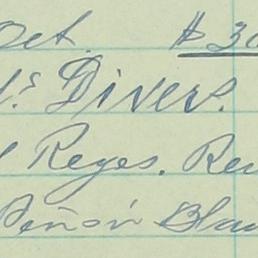 Oct. $30
Divers.
Reyes. Re
Peñón Bla